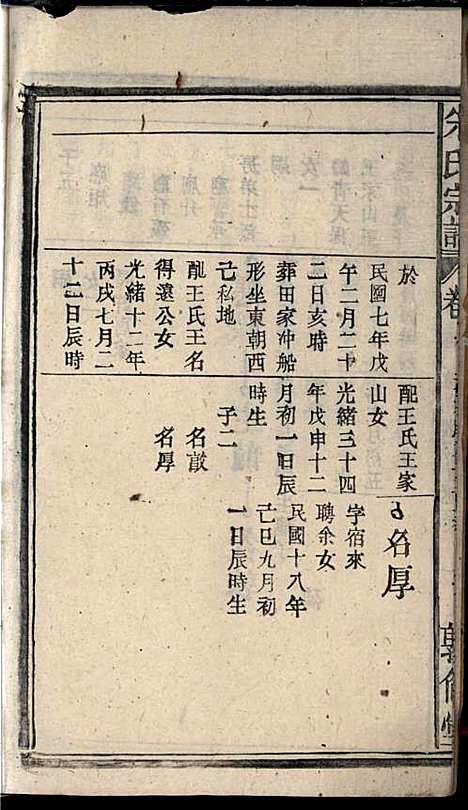 朱氏宗譜
卷
於
民國七年戊
午二月二十
二日亥時
葬田家冲船
形坐東朝西
己私地
配王氏王名
得遠公女
光緒十二年
丙戌七月二
十二日辰時
配王氏王家
山女
光緒三十四
年戊申十二
月初一日辰
時生
子二
名敱
名厚
名厚
字宿來
聘余女
民國十八年
己巳九月初
一日辰時生